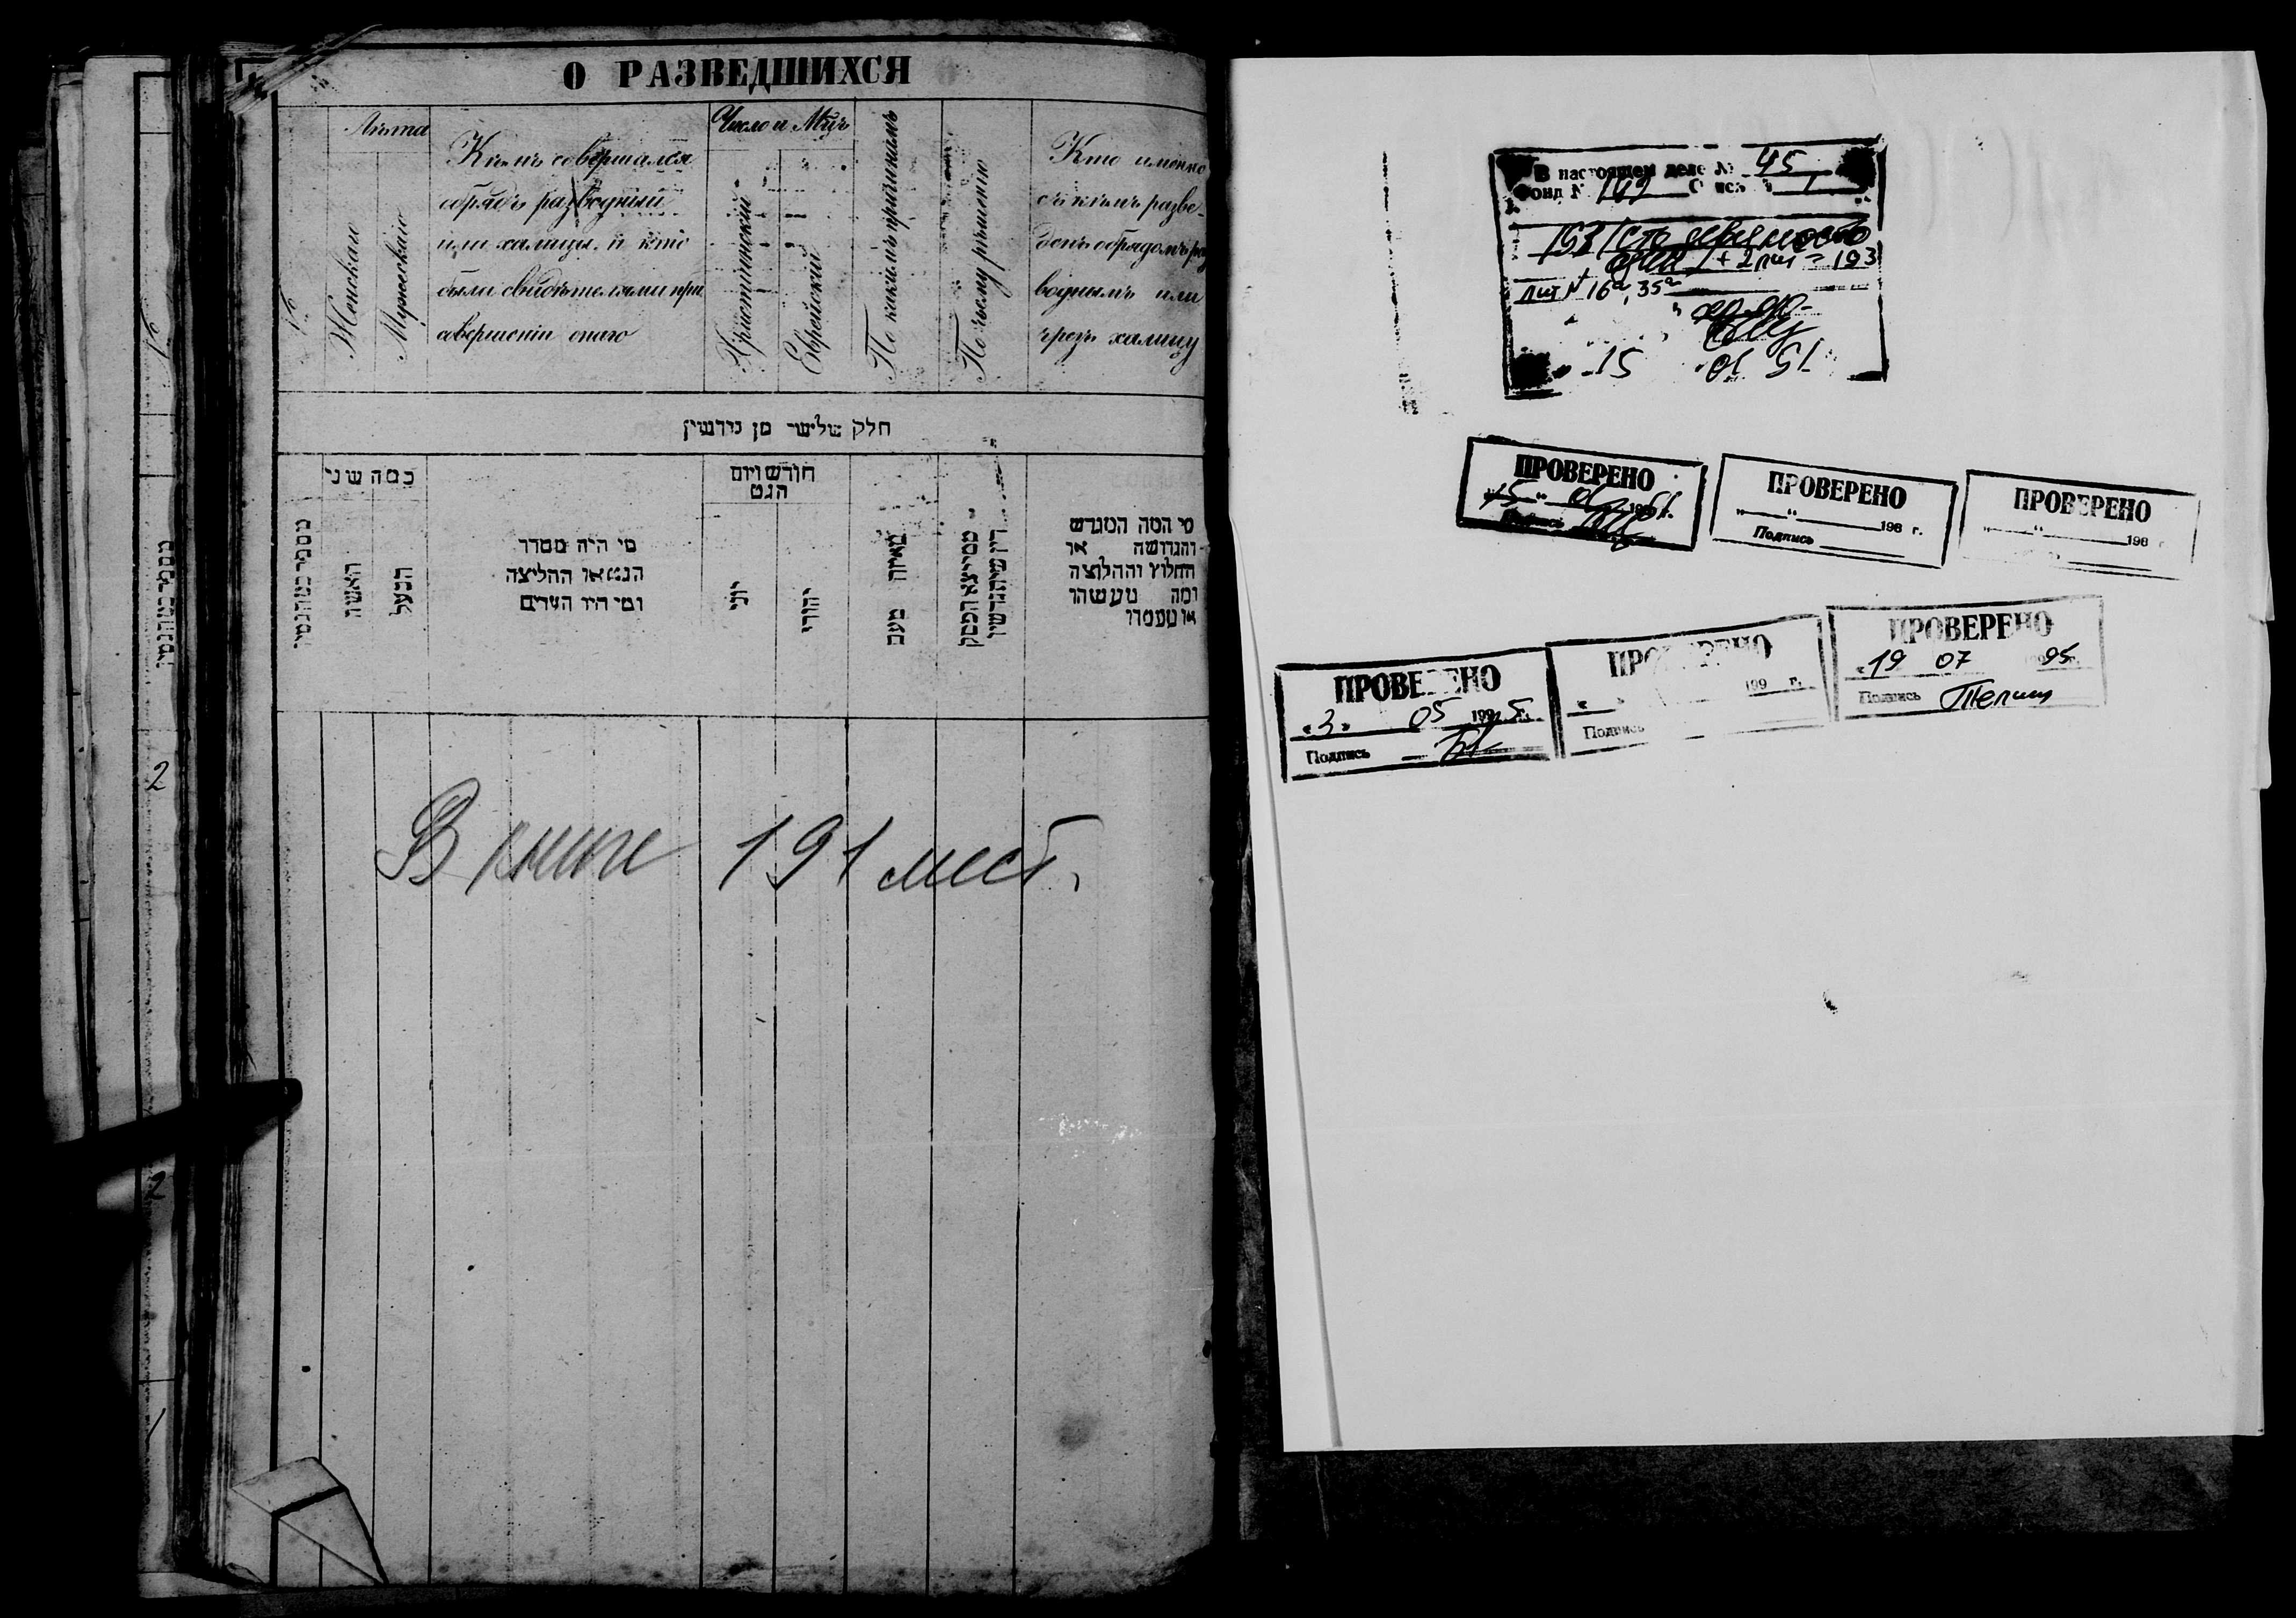 О РАЗВЕДШИХСЯ
№
Лѣта
Женскаго
Мужескаго
Кѣмъ совершался
обрядъ разводный
или халицы, и кто
были свидѣтелями при
совершеніи онаго
Число и Мцъ
Христіянскій
Еврейский
По какимъ причинамъ
По чьему рѣшенію
Кто именно
съ кѣмъ разве-
денъ обрядомъ раз
воднымъ или
чрезъ халицу
חלק שלישי מן גירושין
כמה שני
האשה
הבעל
מי היה מסדר
הגט או החליצה
ומי היו העדים
חודש ויום
הגט
יוני
יהודי
מאיזה טעם
מי המה המגרש
והגרושה או
החולץ והחלוצה
ומה נעשה
2
2
1
В книге 191 лист.
В настоящем деле № 45
Фонд №
191 (сто девяносто
один) + 2 лит = 193
лит № 16а, 35а
ПРОВЕРЕНО
Подпись
ПРОВЕРЕНО
„ “ 198 г.
Подпись
ПРОВЕРЕНО
„ “ 198 г
ПРОВЕРЕНО
«3» 05 1995г.
Подпись
ПРОВЕРЕНО
« » 199 г.
Подпись
ПРОВЕРЕНО
«19 07 95г.
Подпись